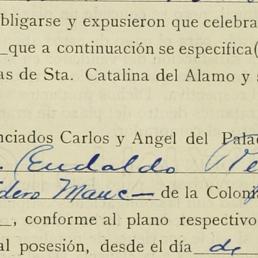 bligarse y expusieron que celebra
que a continuación se especifica(
as de Sta. Catalina del Alamo y s
nciados Carlos y Angel del Pala
Eudaldo
dero Manc— de la Colon
, conforme al plano respectivo
al posesión, desde el día de